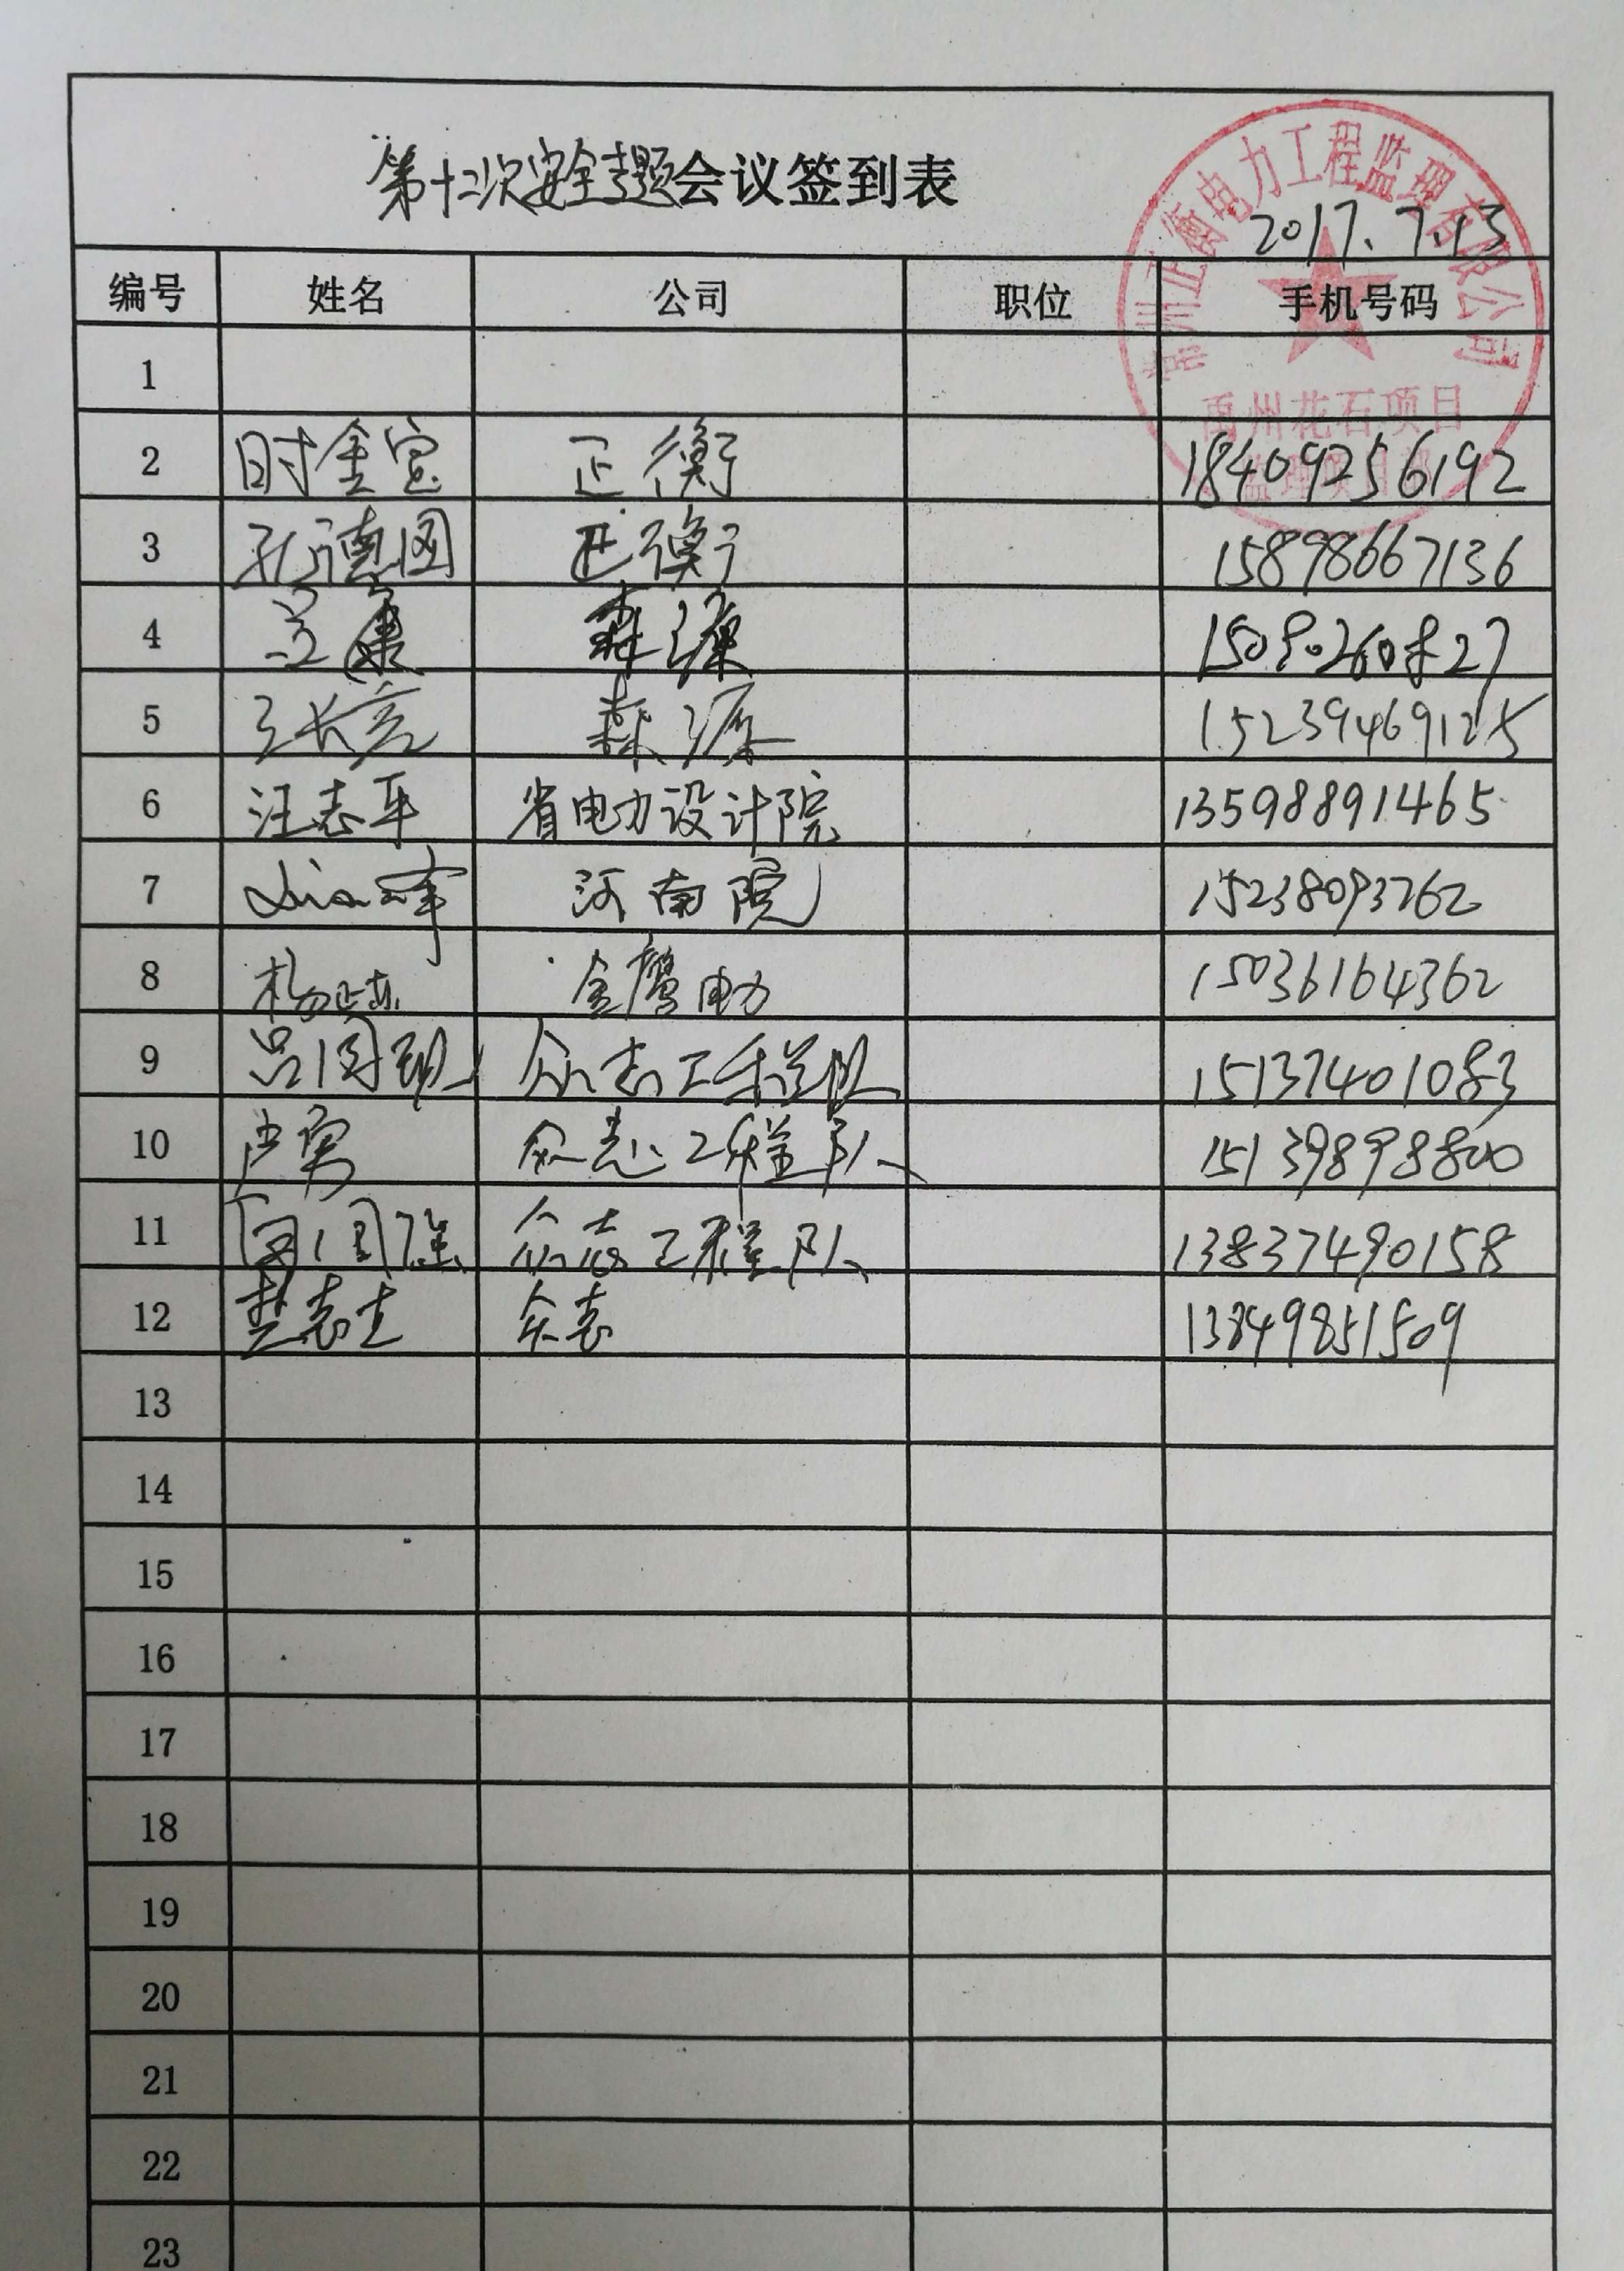 第十二次安全专题会议签到表
常州正衡电力工程监理有限公司
2017.7.13
禹州花石项目
监理项目部
编号 姓名 公司 职位 手机号码
1
2 时金宝 正衡 18409256192
3 孔德图 正衡 15898667136
4 森源 15090260827
5 森源 15239469125
6 汪志平 省电力设计院 13598891465
7 河南院 15238093262
8 金鹰电力 15036164362
9 众志工程队 15137401083
10 众志工程队 15139898800
11 众志工程队 13837490158
12 楚志士 众志 13849851509
13
14
15
16
17
18
19
20
21
22
23